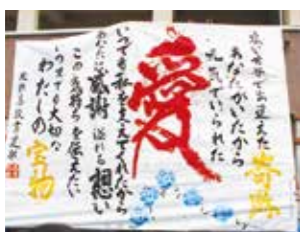 広い世界で出逢えた奇跡
あなたがいたから
元気でいられた
愛
いつでも私を支えてくれたから
あなたには感謝溢れる想い
この気持ちを伝えたい
いつまでも大切な
わたしの宝物